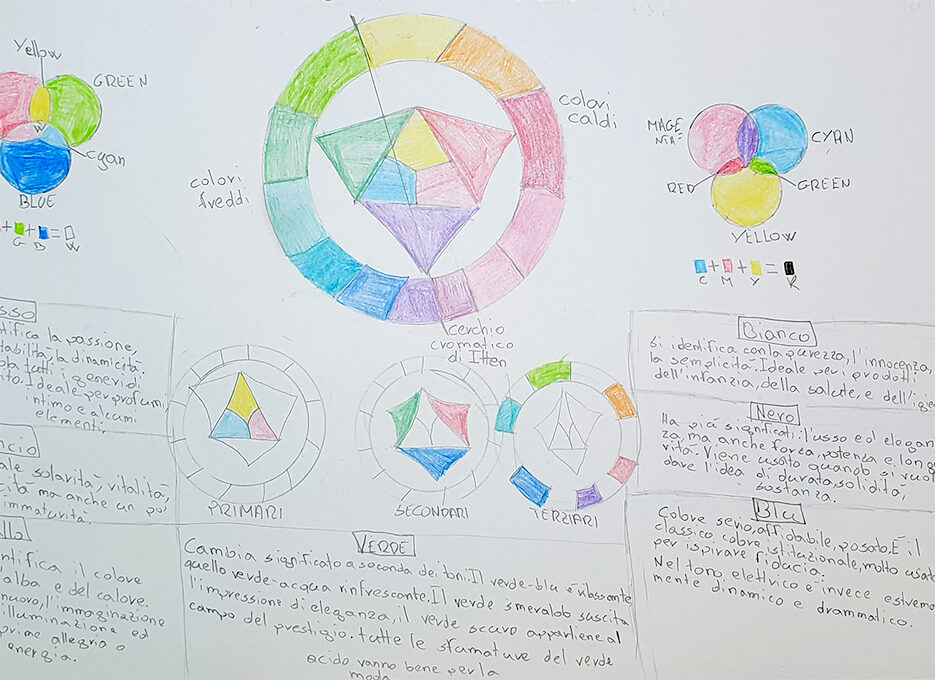 Yellow
GREEN
W
cyan
BLUE
+ G + B = W
colori
freddi
colori
caldi
cerchio
cromatico
di Itten
MAGE
NTA
CYAN
RED
GREEN
YELLOW
C + M + Y = K
PRIMARI
SECONDARI
TERZIARI
sso
tifica la passione,
tabilità, la dinamicità.
tutti i generi di
Ideale per profumi,
intimo e alcuni
elementi.
ncio
ale solarità, vitalità,
cità ma anche un po'
immaturità.
llo
ntifica il colore
alba e del calore.
nuovo, l'immaginazione
illuminazione ed
prime allegria o
energia.
VERDE
Cambia significato a seconda dei toni. Il verde-blu è rilassante
quello verde-acqua rinfrescante. Il verde smeraldo suscita
l'impressione di eleganza, il verde scuro appartiene al
campo del prestigio. tutte le sfumature del verde
acido vanno bene per la
moda
Bianco
Si identifica con la purezza, l'innocenza,
la semplicità. Ideale per i prodotti
dell'infanzia, della salute, e dell'igie
Nero
Ha più significati: l'usso ed elegan
za, ma anche forza, potenza e long
vità. Viene usato quando si vuol
dare l'idea di durata, solidità,
sostanza.
Blu
Colore serio, affidabile, posato. È il
classico colore istituzionale, molto usato
per ispirare fiducia.
Nel tono elettrico è invece estrema
mente dinamico e drammatico.